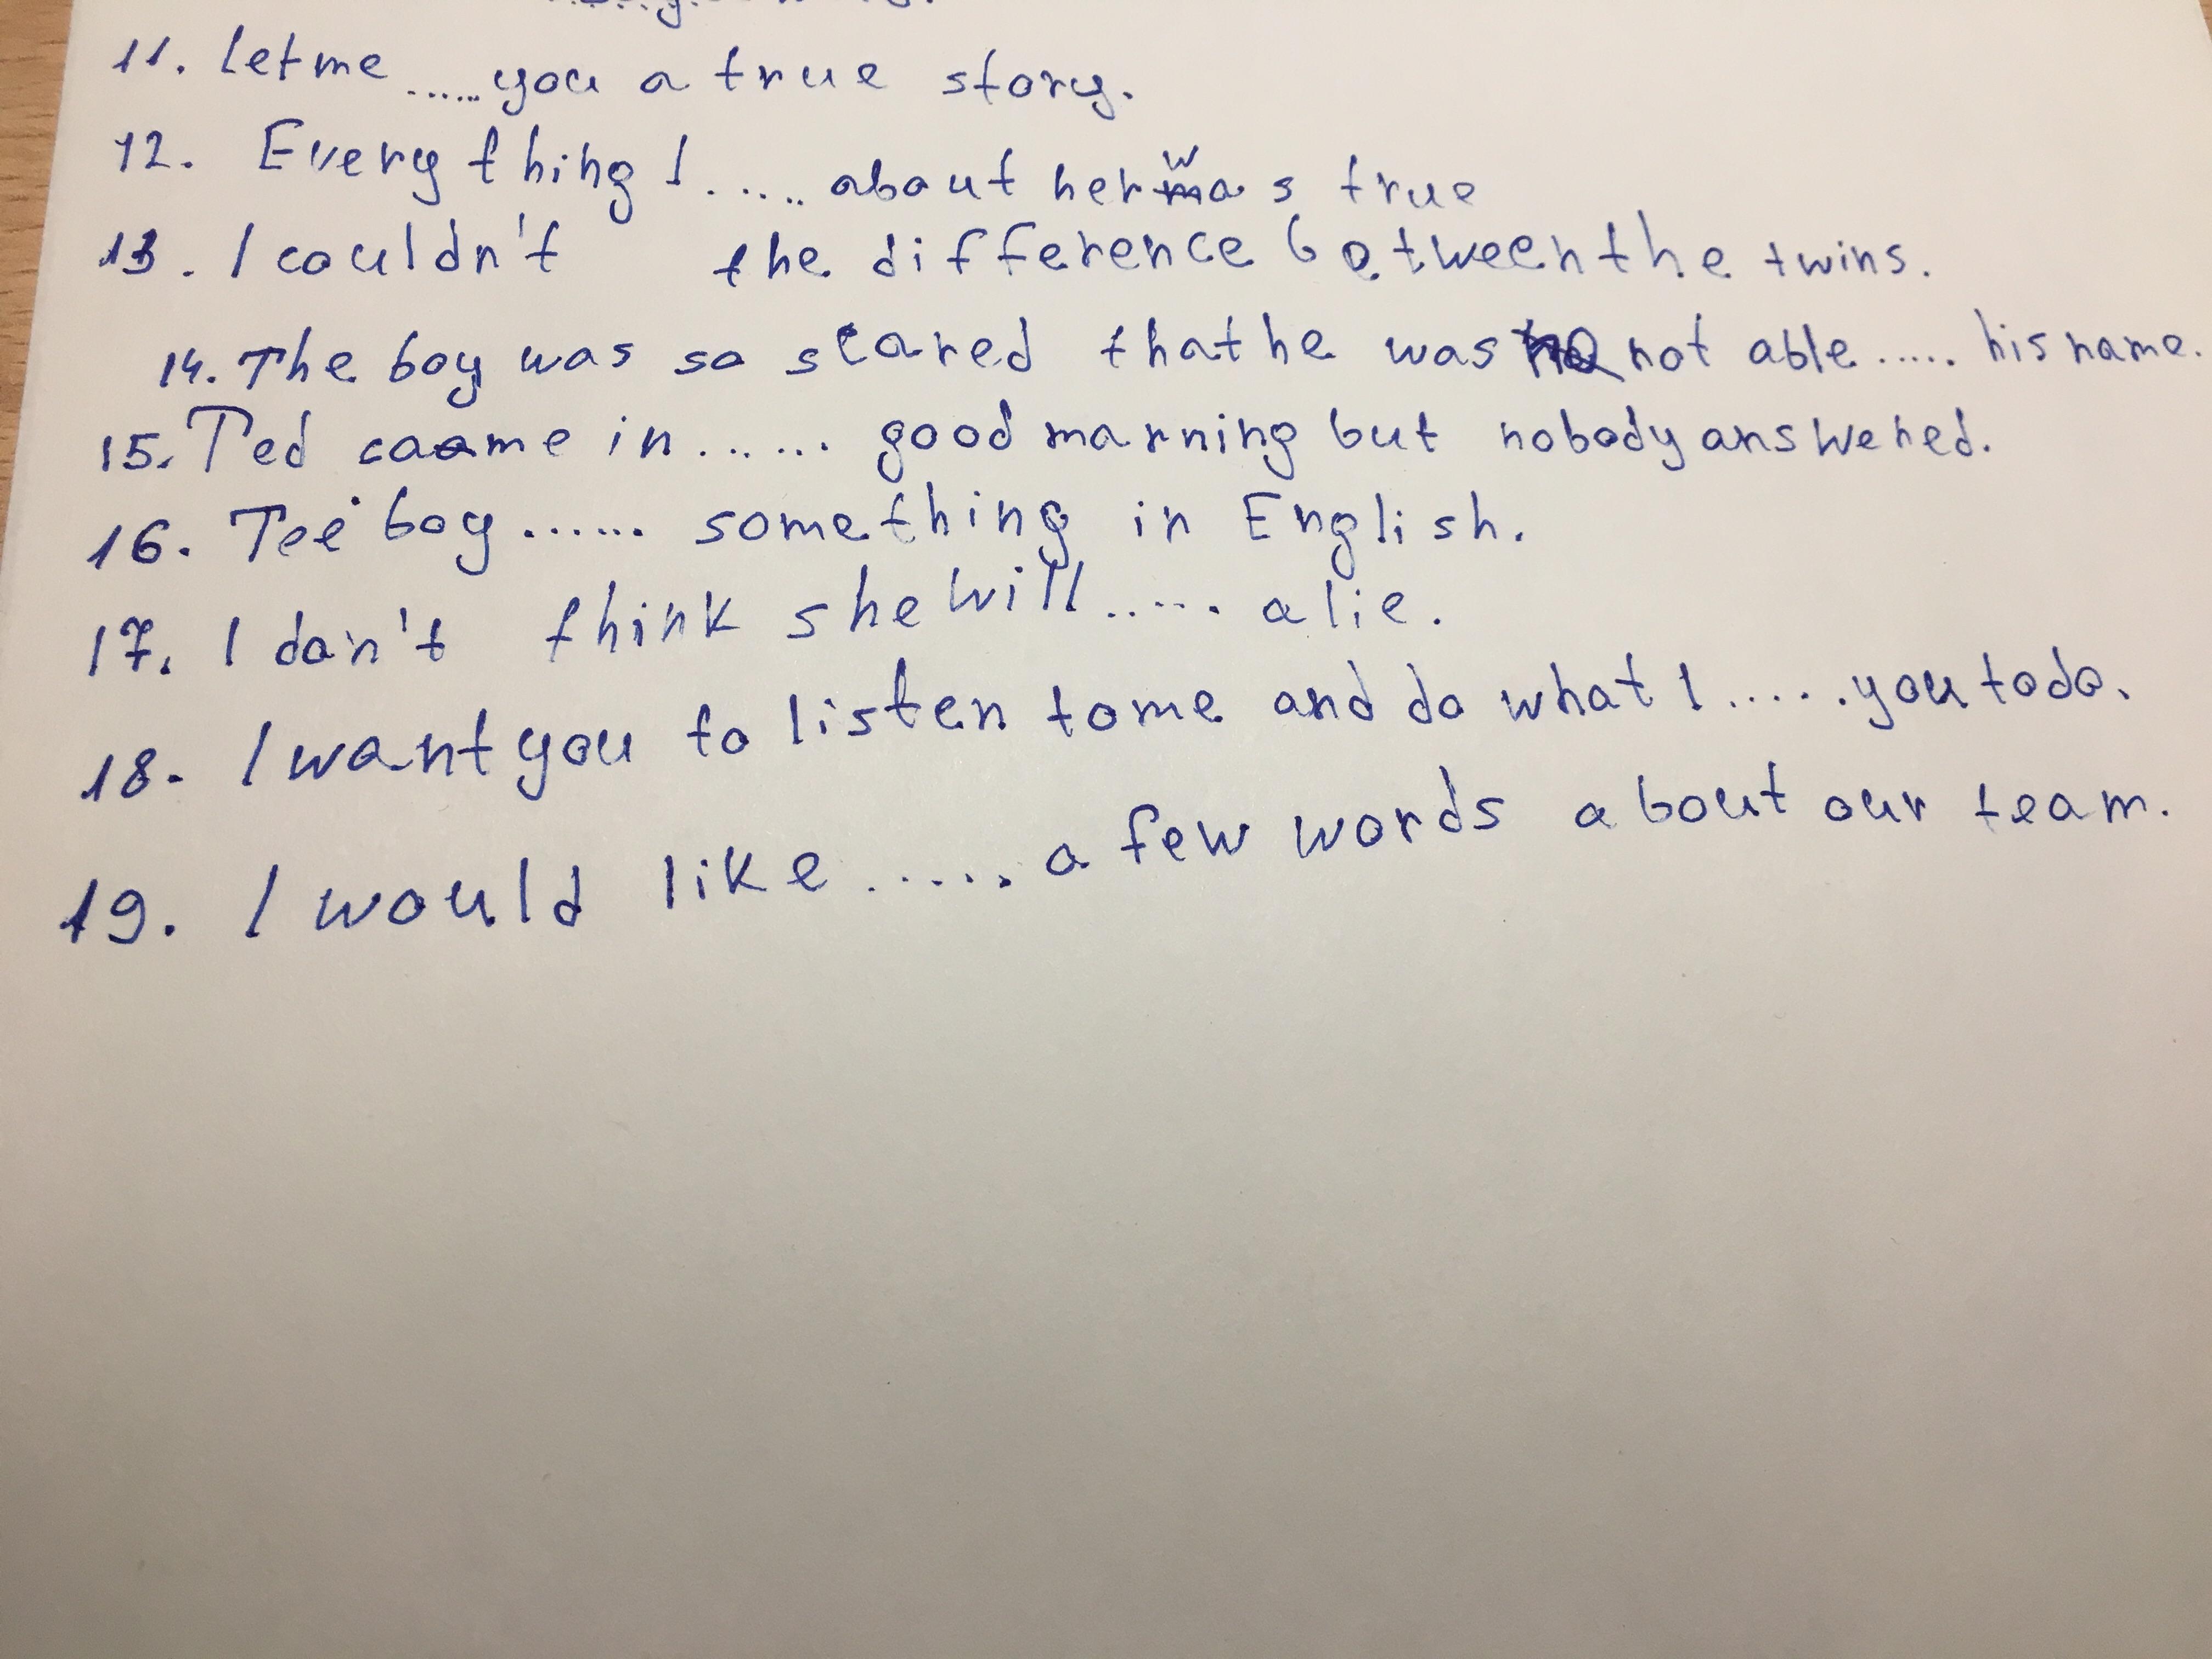 11. let me ...... you a true story.
12. Everything I ..... about her was true
13. I couldn't the difference between the twins.
14. The boy was so scared that he was not able ..... his name.
15. Ted caame in ...... good marning but nobody answered.
16. Tee boy ...... something in English.
17. I don't think she will ..... a lie.
18. I want you to listen to me and do what I ..... you to do.
19. I would like ..... a few words about our team.